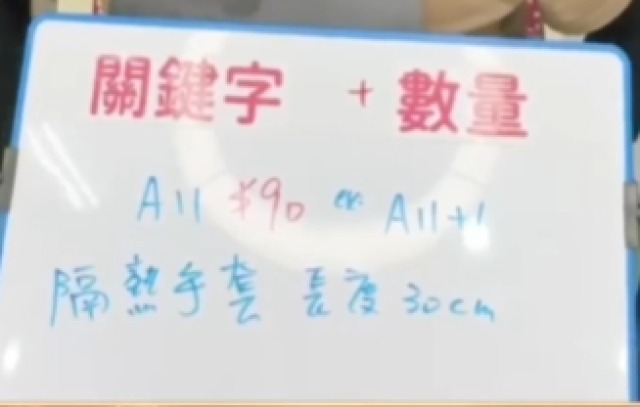 關鍵字 + 數量
A11 $90 ex A11+1
隔熱手套 長度 30cm